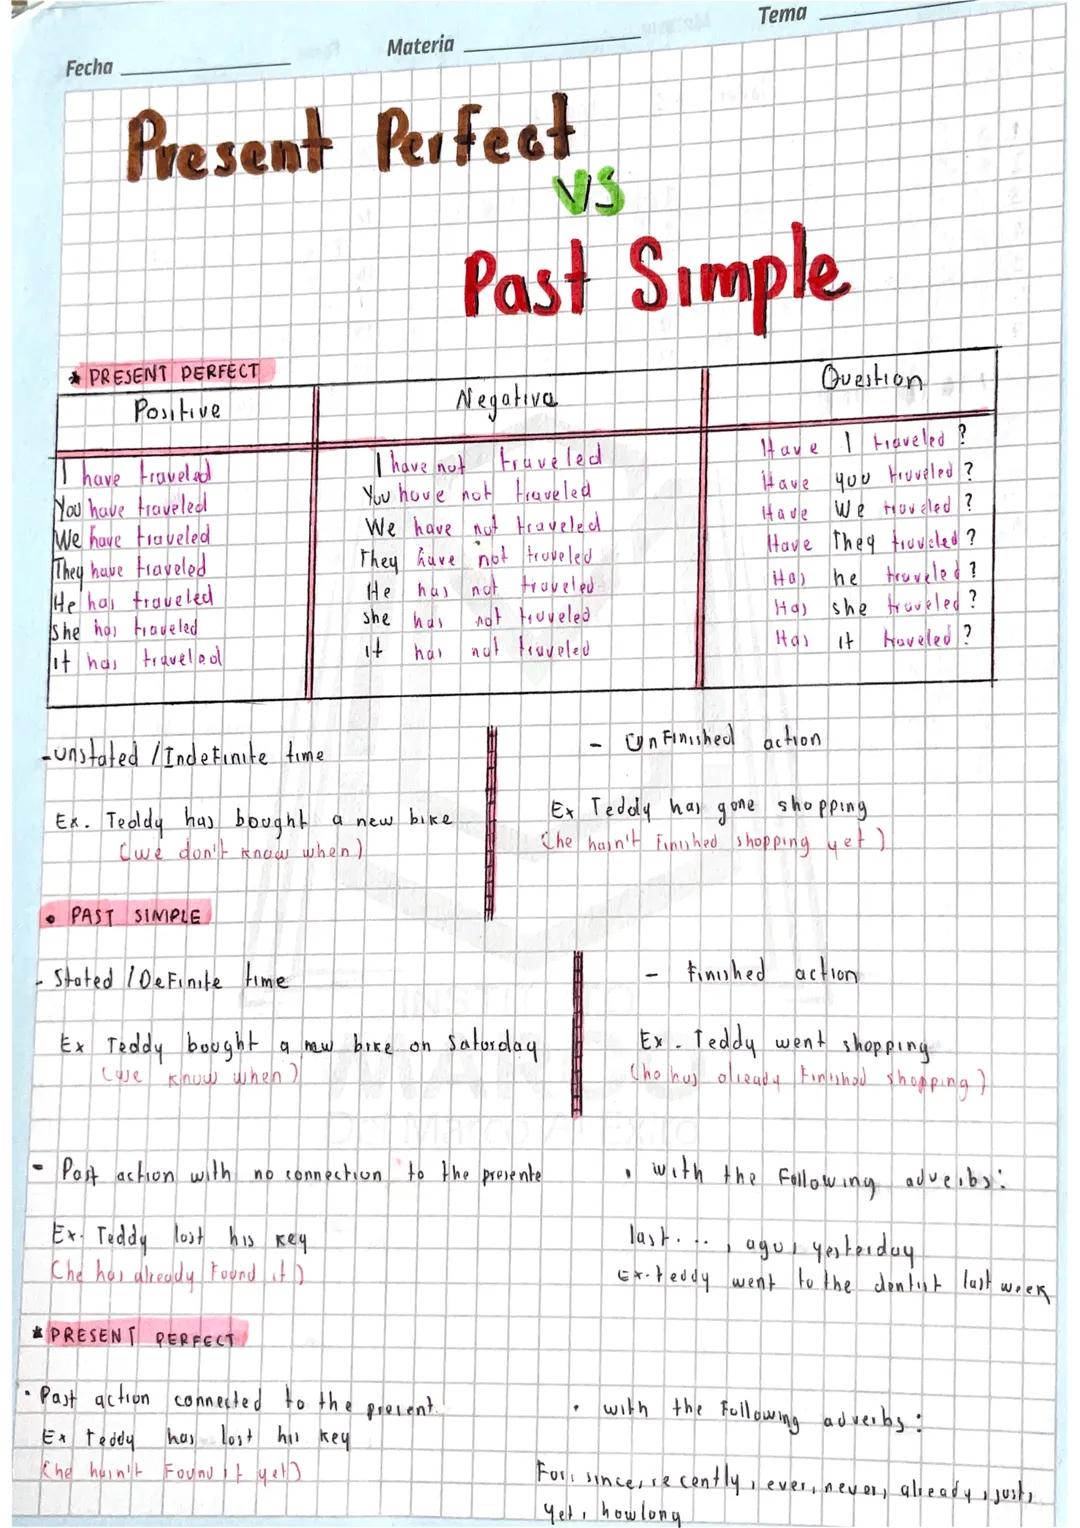 Fecha
Materia
Tema
Present Perfect
VS
Past Simple
* PRESENT PERFECT
Positive
Negative
Question
I have traveled
You have traveled
We have traveled
They have traveled
He has traveled
She has traveled
it has traveled
I have not traveled
You have not traveled
We have not traveled
They have not traveled
He has not traveled
she has not traveled
it has not traveled
Have I traveled ?
Have you traveled ?
Have We traveled ?
Have They traveled ?
Has he traveled ?
Has she traveled ?
Has it traveled ?
- Unstated / Indefinite time
Ex. Teddy has bought a new bike
(we don't know when)
- UnFinished action
Ex Teddy has gone shopping
(he hasn't Finished shopping yet)
• PAST SIMPLE
- Stated / Definite time
Ex Teddy bought a new bike on Saturday
(we know when)
- Finished action
Ex. Teddy went shopping
(he has already Finished shopping)
- Past action with no connection to the presente
Ex. Teddy lost his key
(he has already Found it)
• with the Following adverbs:
last..., ago, yesterday
Ex. teddy went to the dentist last week
* PRESENT PERFECT
• Past action connected to the present.
Ex Teddy has lost his key
(he hasn't Found it yet)
• with the Following adverbs:
For, since, recently, ever, never, already, just,
yet, how long